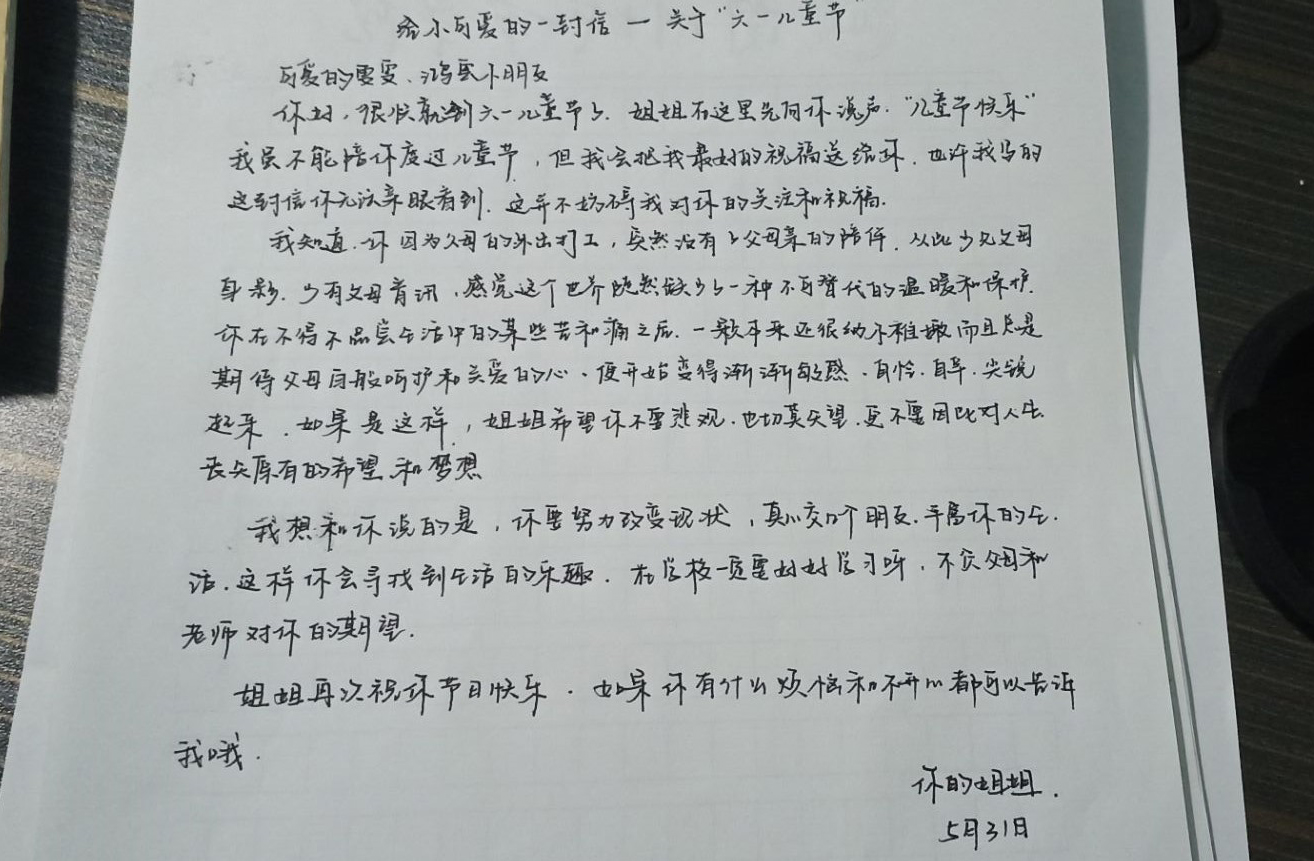 给小可爱的一封信 — 关于“六一儿童节”
可爱的雯雯、鸿 小朋友
你好，很快就到六一儿童节了. 姐姐在这里先向你说声.“儿童节快乐”
我虽不能陪你度过儿童节，但我会把我最好的祝福送给你. 也许我写的
这封信你无法亲眼看到. 这并不妨碍我对你的关注和祝福.
我知道.你因为父母的外出打工，突然没有了父母亲的陪伴. 从此少见父母
身影. 少有父母音讯，感觉这个世界陡然缺少了一种不可替代的温暖和保护.
你在不得不品尝生活中的某些苦和痛之后. 一颗本来还很幼小稚嫩而且总是
期待父母百般呵护和关爱的心、便开始变得渐渐敏感.自怜.自卑.尖锐
起来. 如果是这样，姐姐希望你不要悲观.也切莫失望.更不要因此对人生
丧失原有的希望和梦想
我想和你说的是，你要努力改变现状，真心交几个朋友.丰富你的生.
活.这样你会寻找到生活的乐趣. 在学校一定要好好学习呀，不负父母和
老师对你的期望.
姐姐再次祝你节日快乐. 如果你有什么烦恼和不开心都可以告诉
我哦.
你的姐姐.
5月31日